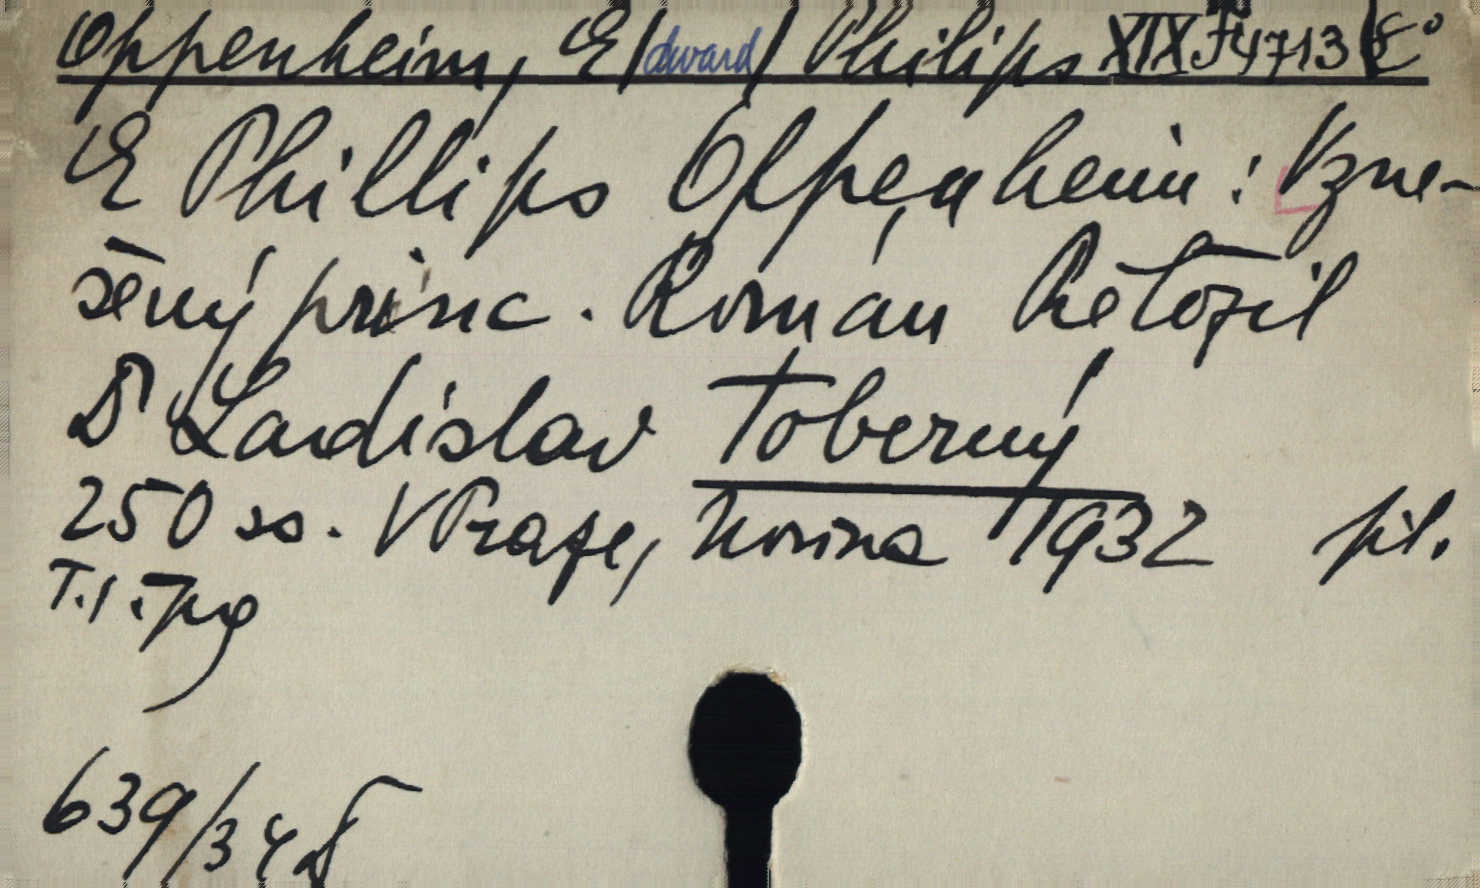 Oppenheim, E/dward/ Philips XIX J 4713
E Phillips Oppenheim: Vzne-
šený princ. Román Přeložil
Dr Ladislav Toberný
250 ss. V Praze, Novina 1932 pil.
T.I.
639/34